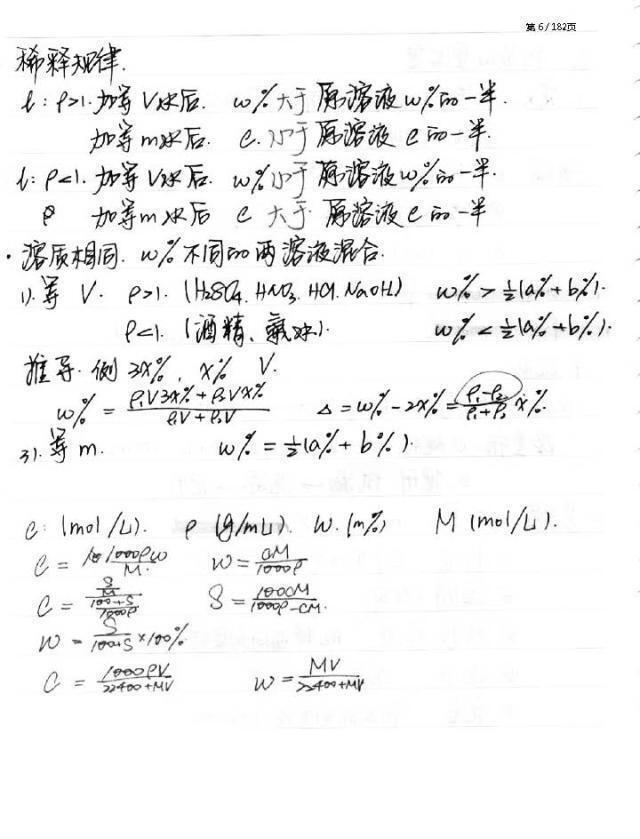 第 6 / 182页
稀释规律.
1: ρ>1. 加等V水后. w%大于原溶液w%的一半.
加等m水后. c.小于原溶液c的一半.
1: ρ<1. 加等V水后. w%小于原溶液w%的一半.
ρ 加等m水后 c 大于 原溶液c的一半
· 溶质相同. w%不同的两溶液混合.
1). 等 V. ρ>1. (H2SO4. HNO3. HCl. NaOH) w% > ½(a%+b%).
ρ<1. (酒精、氨水). w% < ½(a%+b%).
推导. 例 3x%, x% V.
w% = (ρ₁V3x%+ρ₂Vx%)/(ρ₁V+ρ₂V) Δ=w%-2x%=(ρ₁-ρ₂)/(ρ₁+ρ₂) x%.
3). 等 m. w% = ½(a%+b%).
c: (mol/L). ρ (g/mL). w. (m%) M (mol/L).
c = 1000ρw/M. w = cM/1000ρ
c = (S/M)/((100+S)/1000ρ) S = 100cM/(1000ρ-cM).
w = S/(100+S) ×100%
c = 1000ρV/(22400+MV) w = MV/(22400+MV)